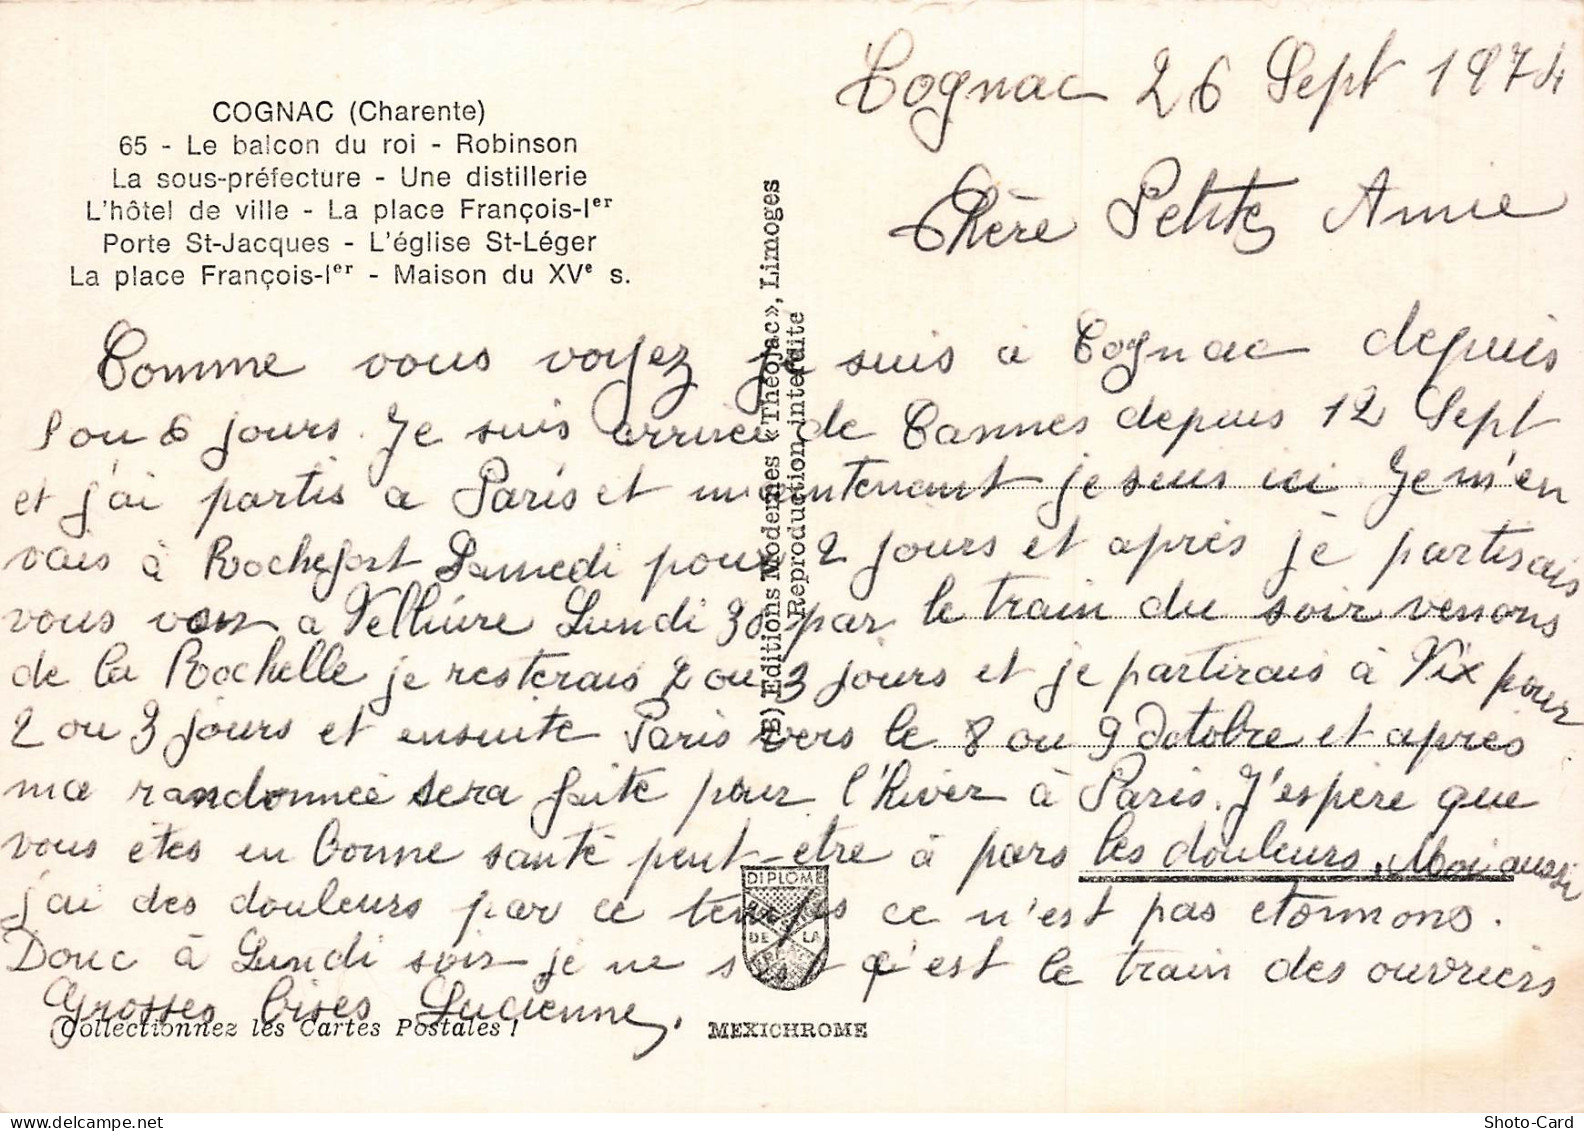 Cognac 26 Sept 1974
COGNAC (Charente)
65 - Le balcon du roi - Robinson
La sous-préfecture - Une distillerie
L'hôtel de ville - La place François-Ier
Porte St-Jacques - L'église St-Léger
La place François-Ier - Maison du XVe s.
Chère Petite Amie
Comme vous voyez je suis à Cognac depuis
5 ou 6 jours. Je suis arrivée de Cannes depuis 12 Sept
et j'ai partis a Paris et maintenant je suis ici. Je m'en
vais à Rochefort Samedi pour 2 jours et après je partirais
vous voir a Velluire Lundi 30 par le train du soir venons
de la Rochelle je resterais 2 ou 3 jours et je partirais à Vix pour
2 ou 3 jours et ensuite Paris vers le 8 ou 9 Octobre et après
ma randonnée sera faite pour l'hiver à Paris. J'espère que
vous êtes en bonne santé peut-etre à pars les douleurs, Moi aussi
j'ai des douleurs par ce temps ce n'est pas etonnons.
Donc à Lundi soir je ne s c'est le train des ouvriers
Grosses bises Lucienne,
Collectionnez les Cartes Postales !
MEXICHROME
(B) Editions Modernes «Théojac», Limoges
Reproduction interdite
DIPLOME
DE LA
Shoto-Card